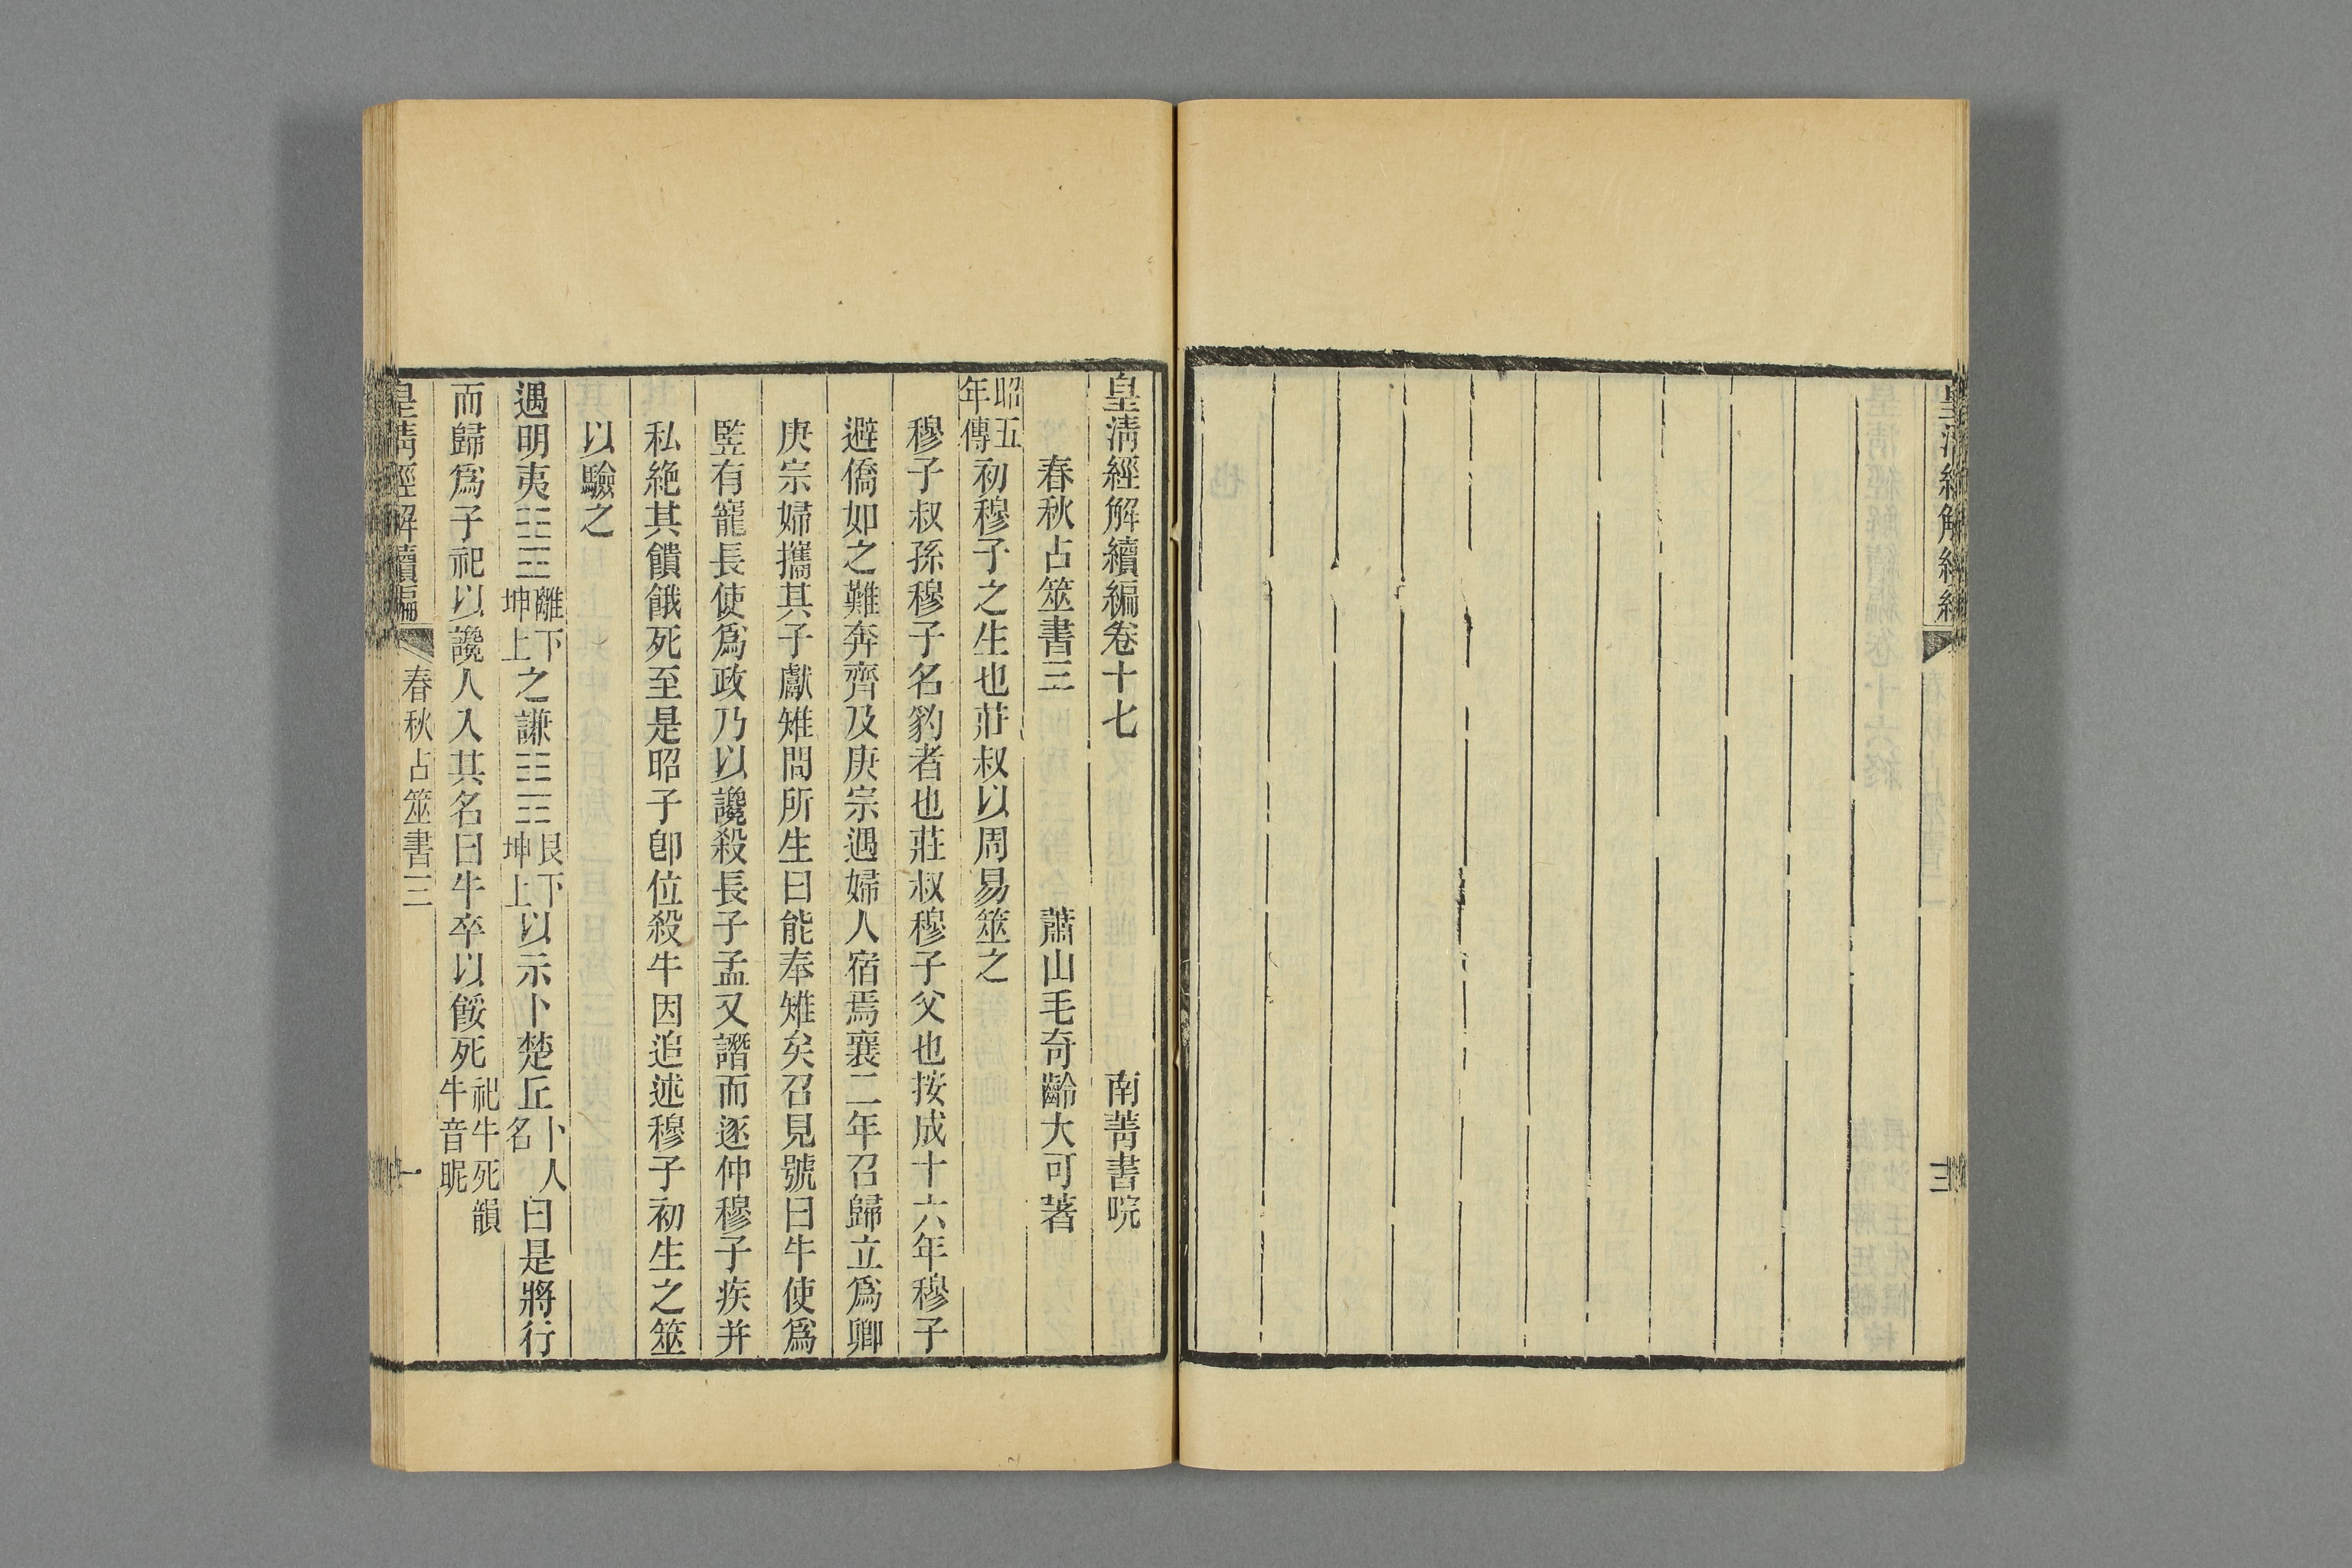 皇清經解續編卷十七 南菁書院
春秋占筮書三 蕭山毛奇齡大可著
昭五年傳初穆子之生也莊叔以周易筮之
穆子叔孫穆子名豹者也莊叔穆子父也按成十六年穆子
避僑如之難奔齊及庚宗遇婦人宿焉襄二年召歸立爲卿
庚宗婦攜其子獻雉問所生曰能奉雉矣召見號曰牛使爲
豎有寵長使爲政乃以讒殺長子孟又譖而逐仲穆子疾并
私絶其饋餓死至是昭子卽位殺牛因追述穆子初生之筮
以驗之
遇明夷離下坤上之謙艮下坤上以示卜楚丘卜人名曰是將行
而歸爲子祀以讒人入其名曰牛卒以餒死祀牛死韻牛音呢
皇清經解續編 春秋占筮書三 一